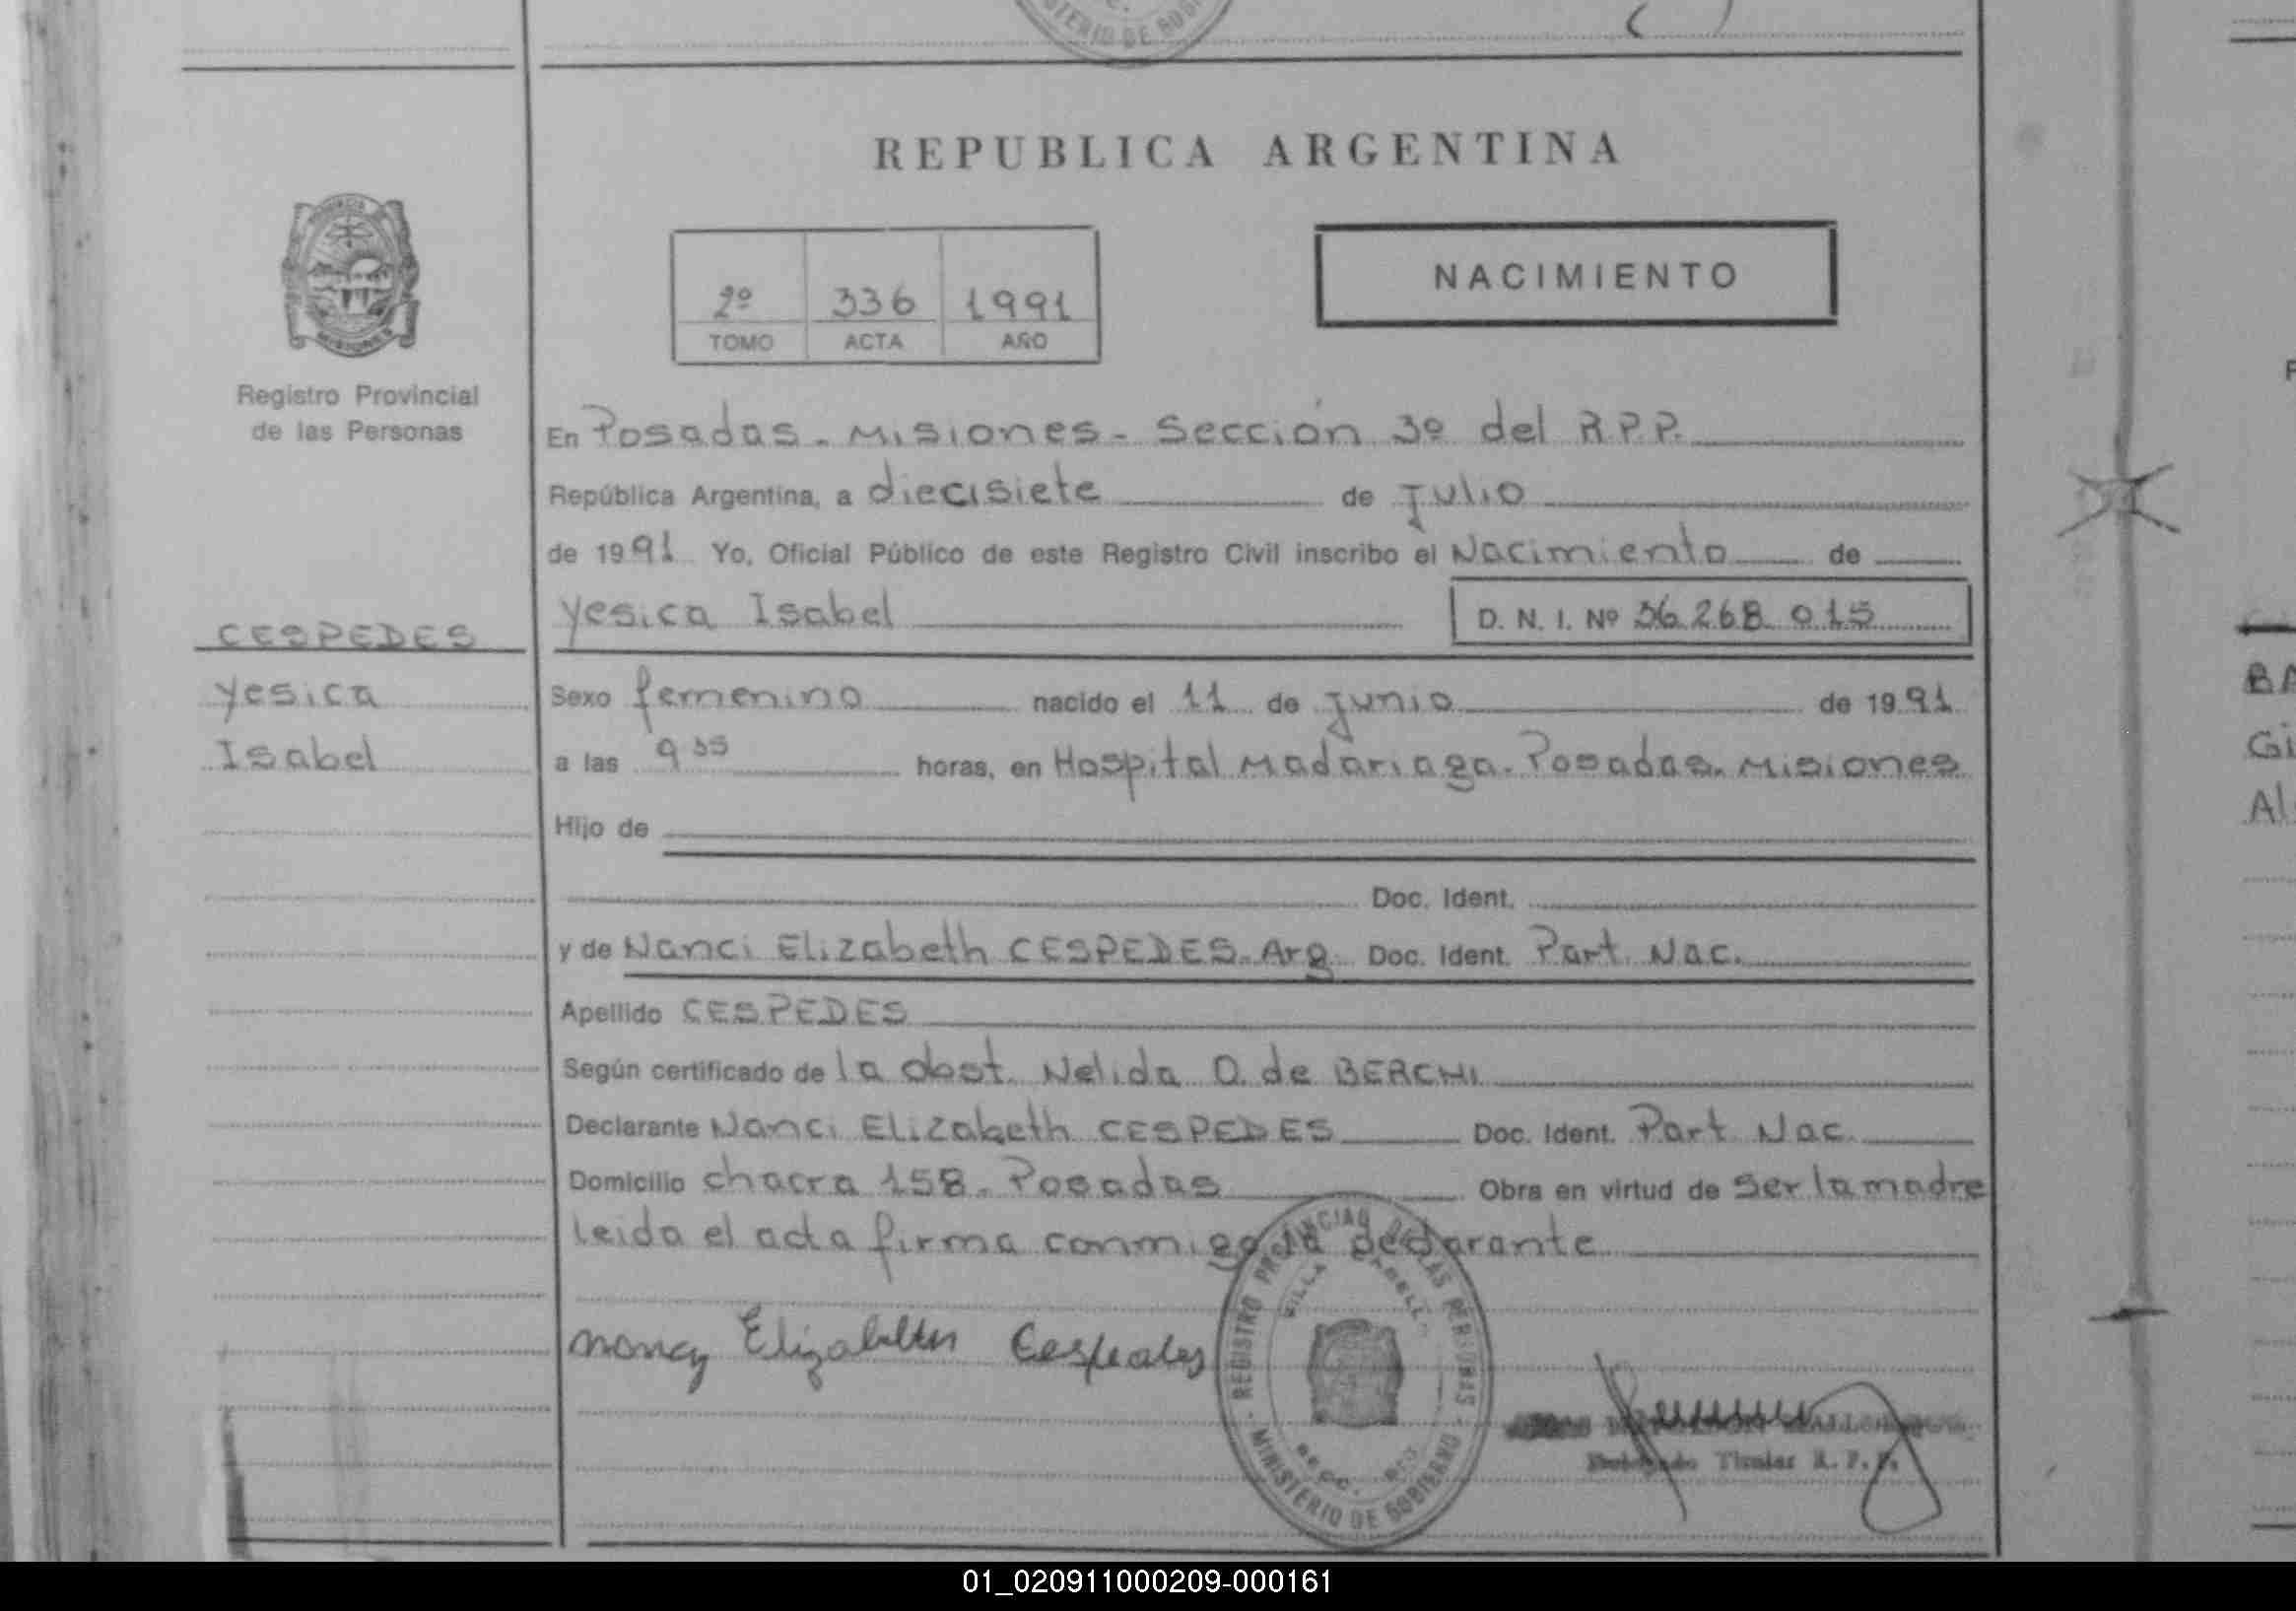 TERIO DE GOBI
REPUBLICA ARGENTINA
2º 336 1991
TOMO ACTA AÑO
NACIMIENTO
PROVINCIA
MISIONES
Registro Provincial
de las Personas
En Posadas - Misiones - Sección 3º del R.P.P.
República Argentina, a diecisiete de Julio
de 1991 Yo, Oficial Público de este Registro Civil inscribo el Nacimiento de
Yesica Isabel D. N. I. Nº 36.268.015
CESPEDES
Yesica
Isabel
Sexo femenino nacido el 11 de Junio de 1991
a las 9 35 horas, en Hospital Madariaga. Posadas. Misiones
Hijo de
Doc. Ident.
y de Nanci Elizabeth CESPEDES. Arg. Doc. Ident. Part. Nac.
Apellido CESPEDES
Según certificado de la obst. Nelida O. de BERCHI
Declarante Nanci Elizabeth CESPEDES Doc. Ident. Part. Nac.
Domicilio chacra 158. Posadas Obra en virtud de Ser la madre
leida el acta firma conmigo la declarante
Nancy Elizabeth Cespedes
REGISTRO PROVINCIAL DE LAS PERSONAS
VILLA CABELLO
SECC. 3
MINISTERIO DE GOBIERNO
Titular R. P. P.
BA
Gi
Al
01_020911000209-000161